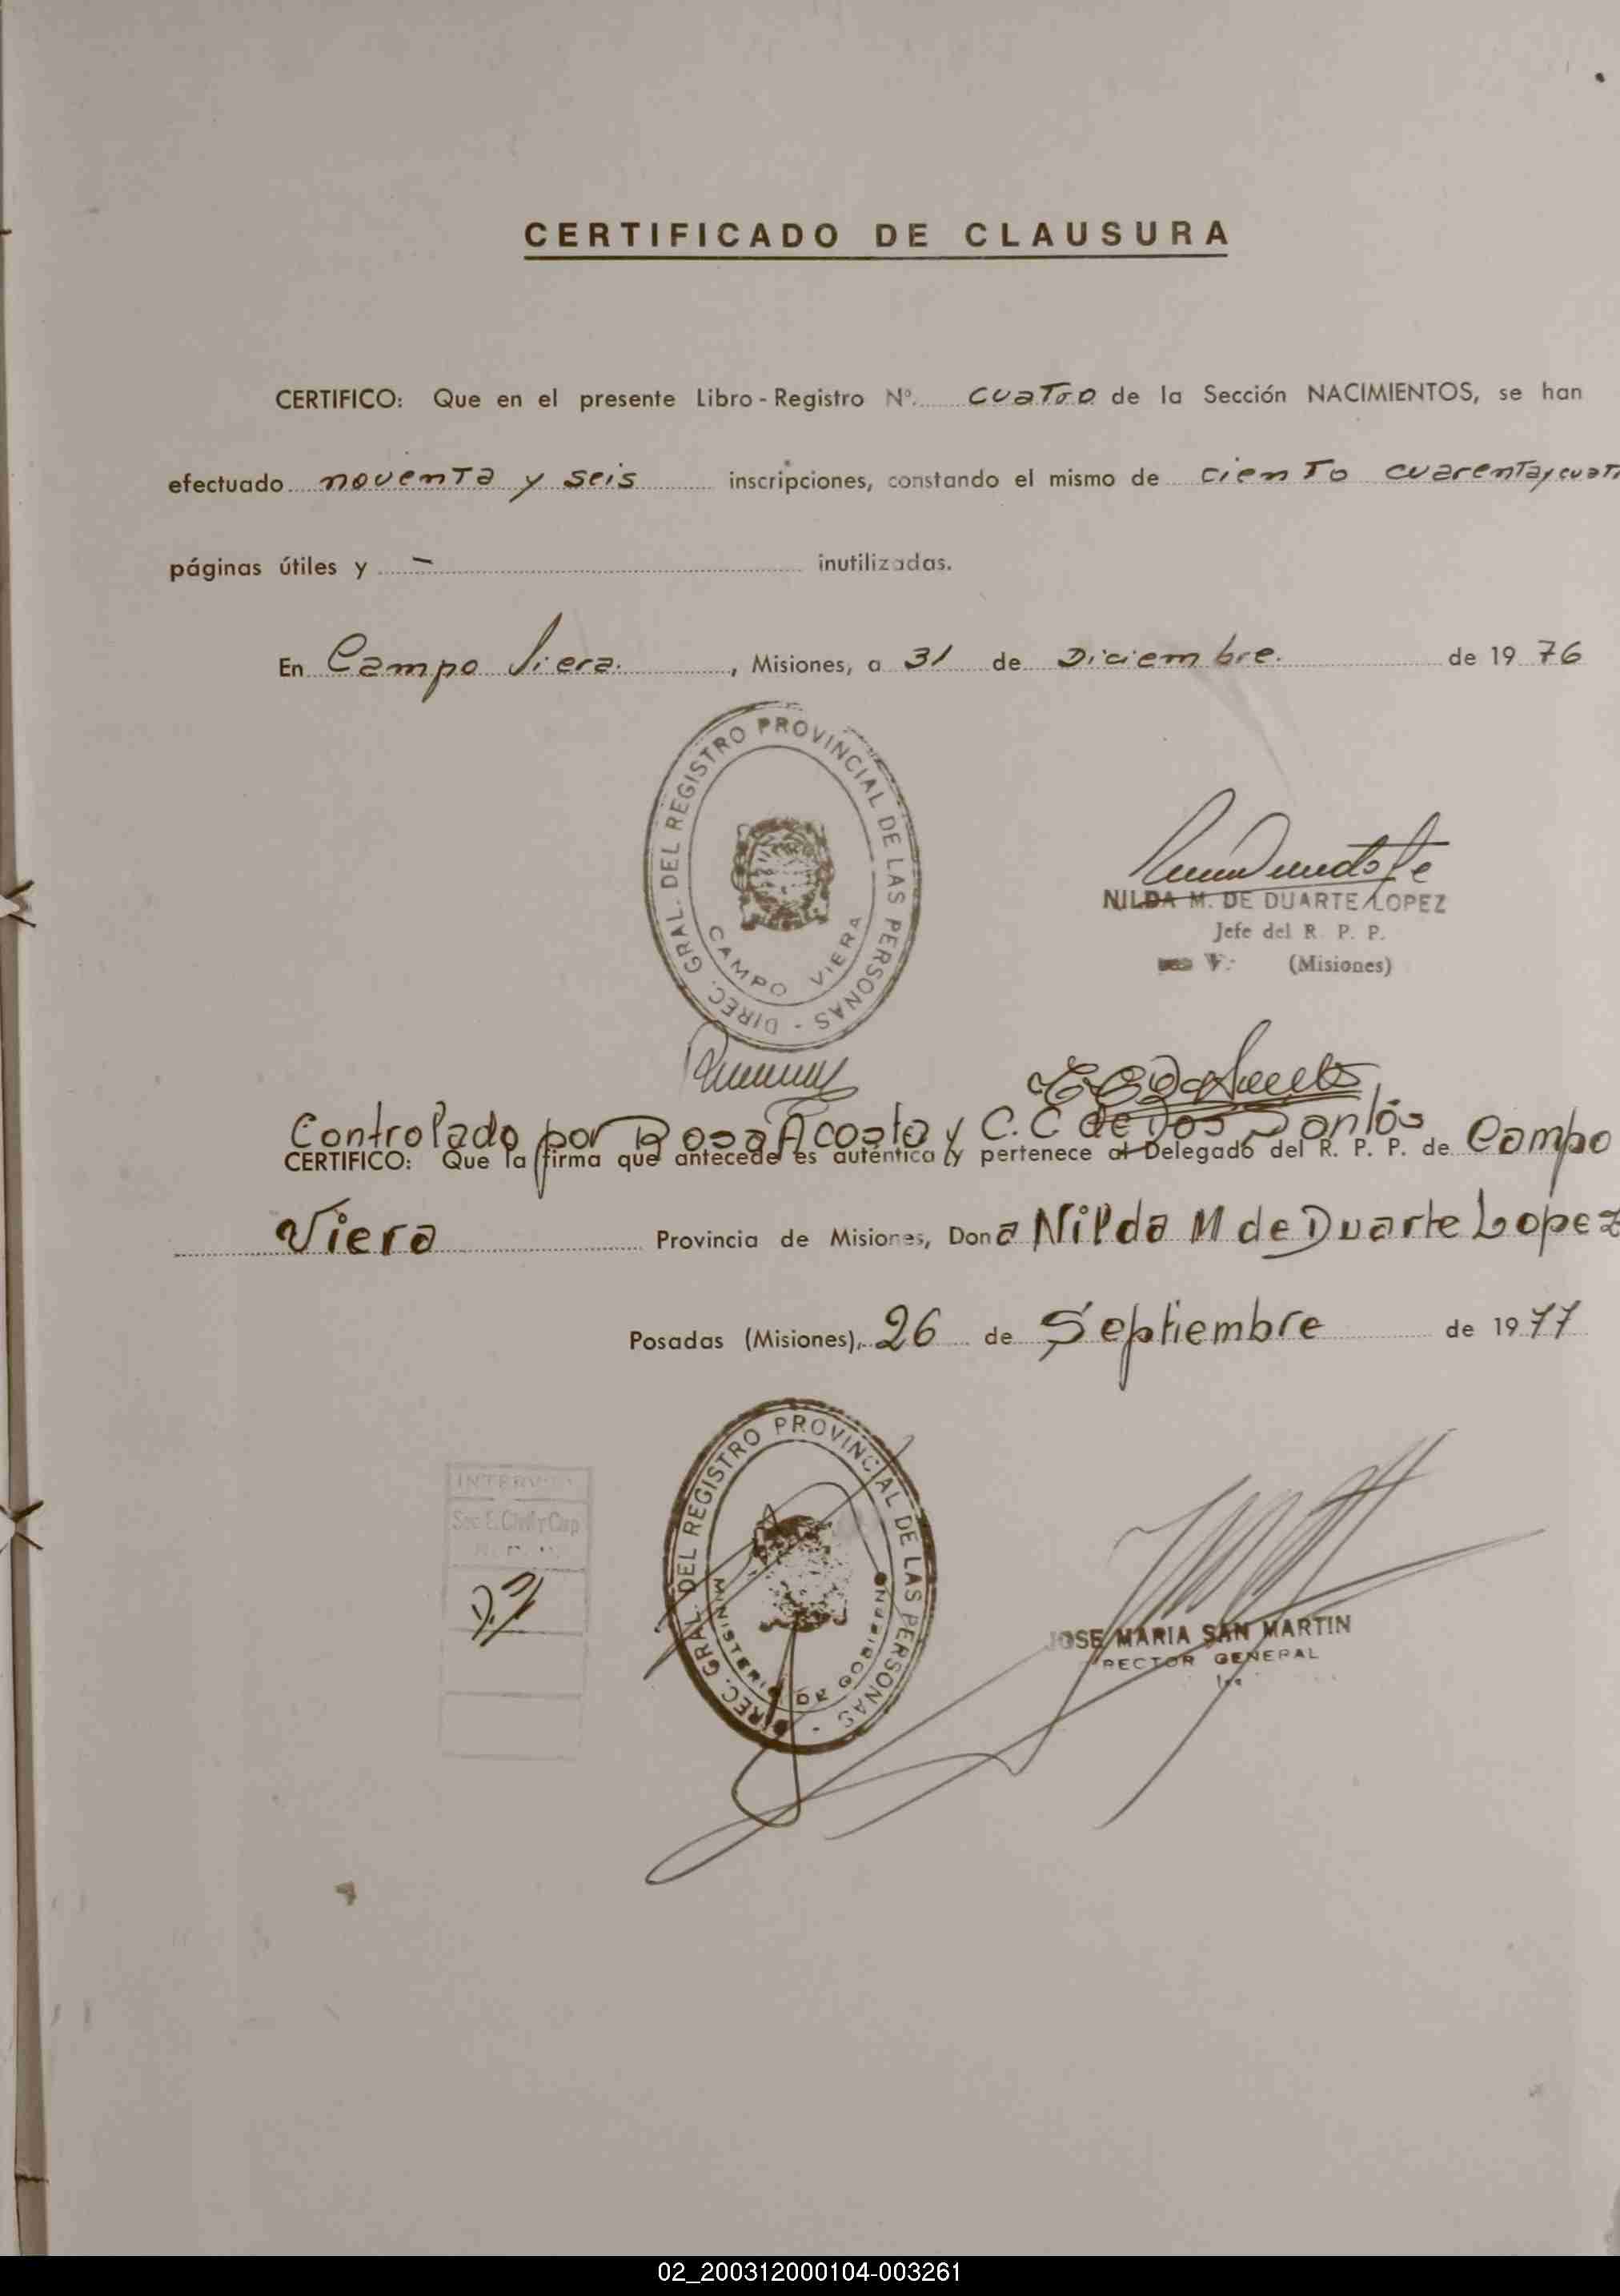 CERTIFICADO DE CLAUSURA
CERTIFICO: Que en el presente Libro - Registro Nº. cuatro de la Sección NACIMIENTOS, se han
efectuado noventa y seis inscripciones, constando el mismo de ciento cuarenta y cuatr
páginas útiles y — inutilizadas.
En Campo Viera, Misiones, a 31 de Diciembre. de 1976
DIREC. GRAL. DEL REGISTRO PROVINCIAL DE LAS PERSONAS -
CAMPO VIERA
NILDA M. DE DUARTE LOPEZ
Jefe del R. P. P.
V. (Misiones)
Controlado por Rosa Acosta y C. C de Dos Santos
CERTIFICO: Que la firma que antecede es auténtica y pertenece al Delegado del R. P. P. de Campo
Viera Provincia de Misiones, Dona Nilda M de Duarte Lopez
Posadas (Misiones), 26 de Septiembre de 1977
DIREC. GRAL. DEL REGISTRO PROVINCIAL DE LAS PERSONAS -
MINISTERIO DE GOBIERNO
Sec E. Civil y Cap
JOSE MARIA SAN MARTIN
RECTOR GENERAL
02_200312000104-003261